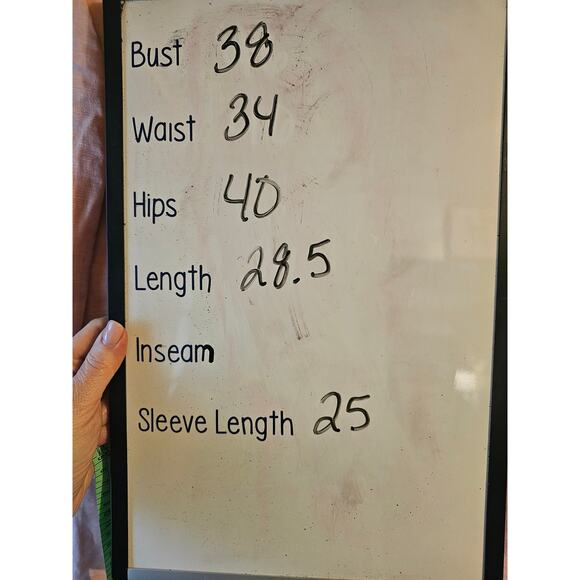 Bust 38
Waist 34
Hips 40
Length 28.5
Inseam
Sleeve Length 25